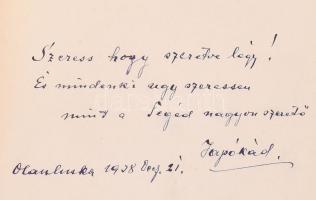 Szeress hogy szeretve légy!
És mindenki úgy szeressen
mint a Tégéd nagyon szerető
Japókád.
1938 21.